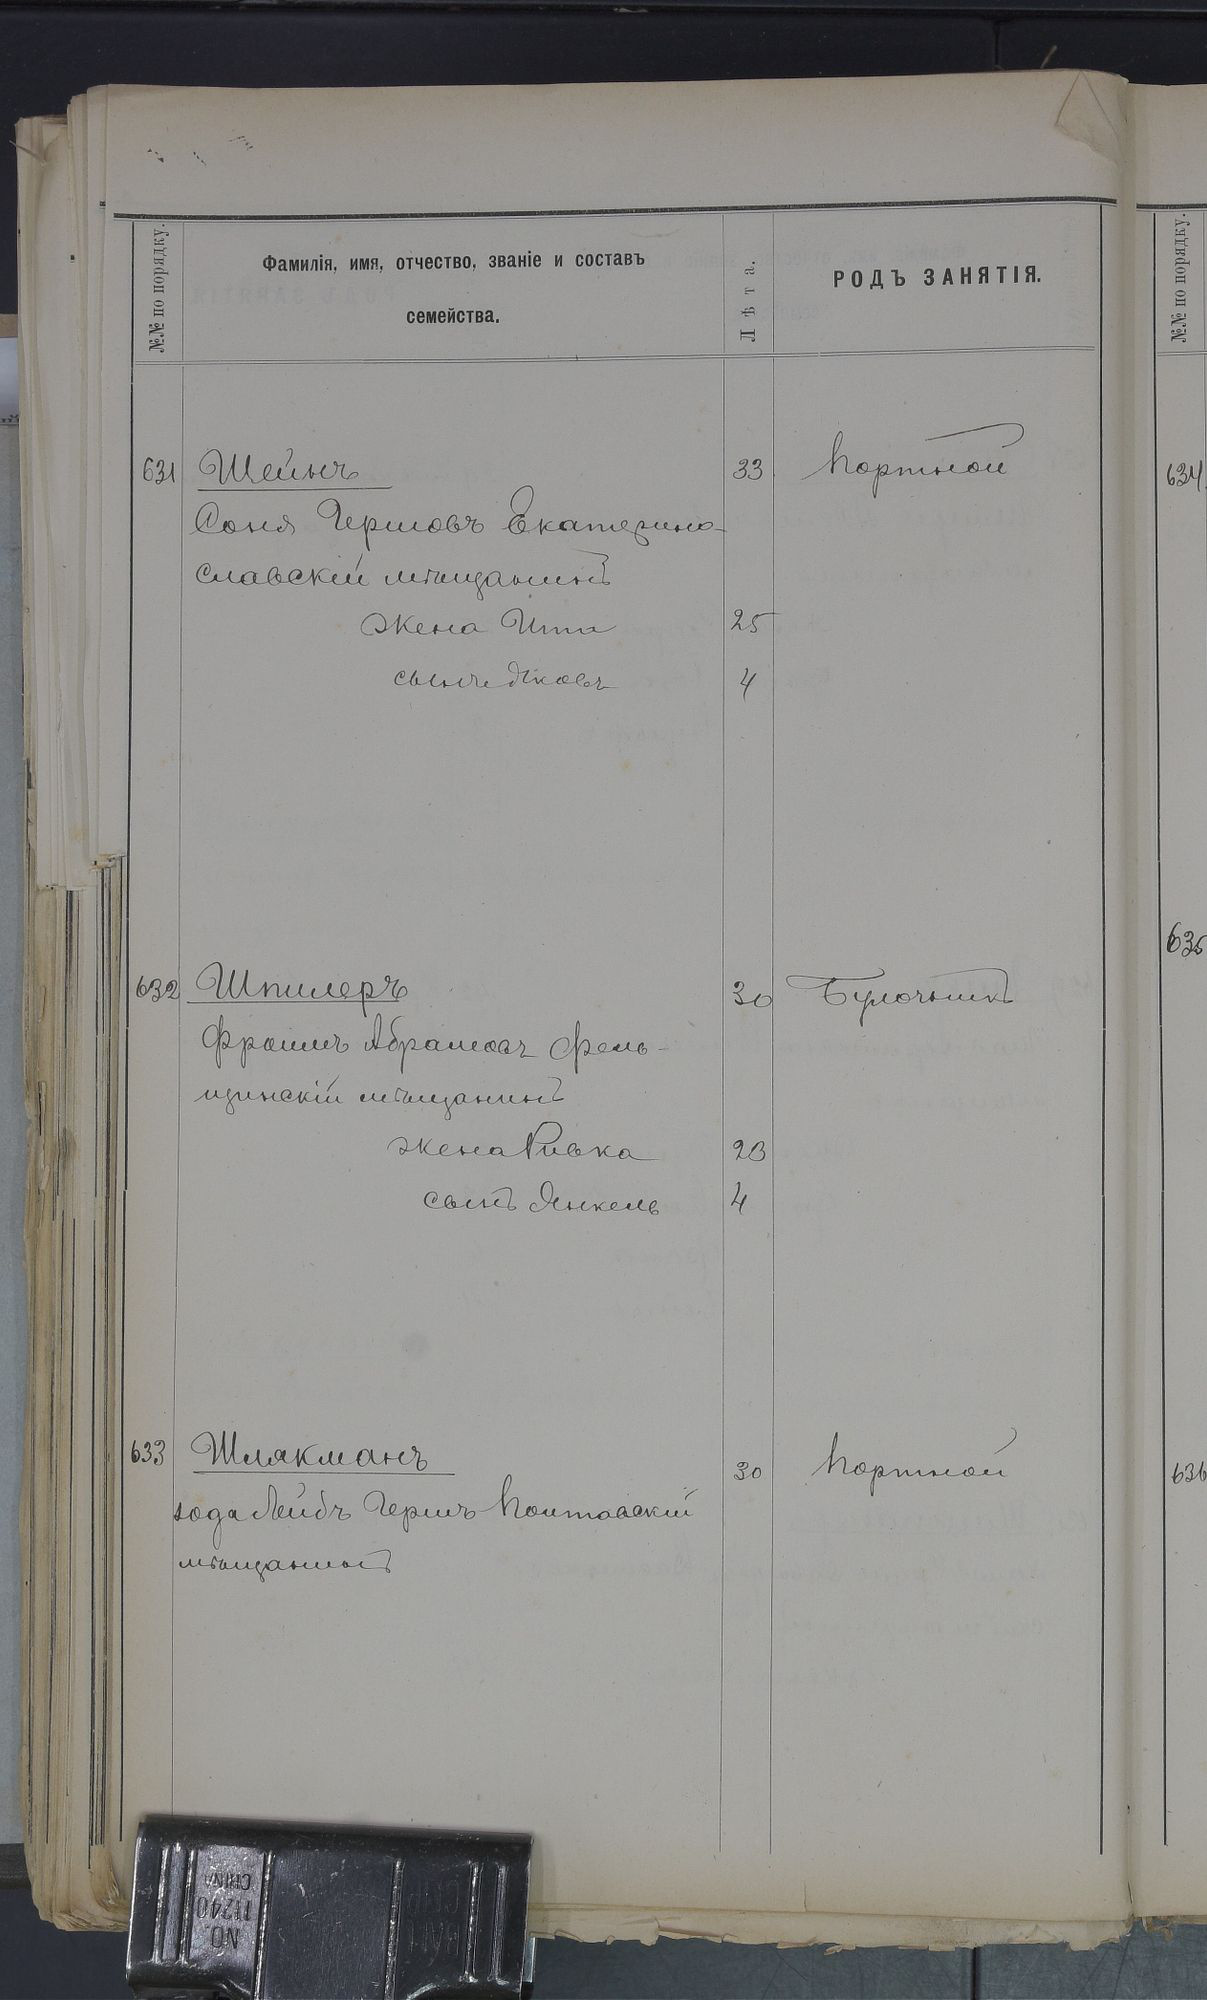 №№ по порядку.
Фамилія, имя, отчество, званіе и составъ
семейства.
Лѣта.
РОДЪ ЗАНЯТІЯ.
№№ по порядку.
631 Шейнъ 33 Портной
Соня Гершовъ Екатерино-
славскій мѣщанинъ
жена Ита 25
сынъ Яковъ 4
634
635
632 Шпилеръ 30 Булочникъ
Фроимъ Абрамовъ Фель-
щинскій мѣщанинъ
жена Ривка 23
сынъ Янкель 4
633 Шлякманъ 30 Портной
Лейбъ Гершъ
мѣщанинъ
636
NO
11240
CHINA